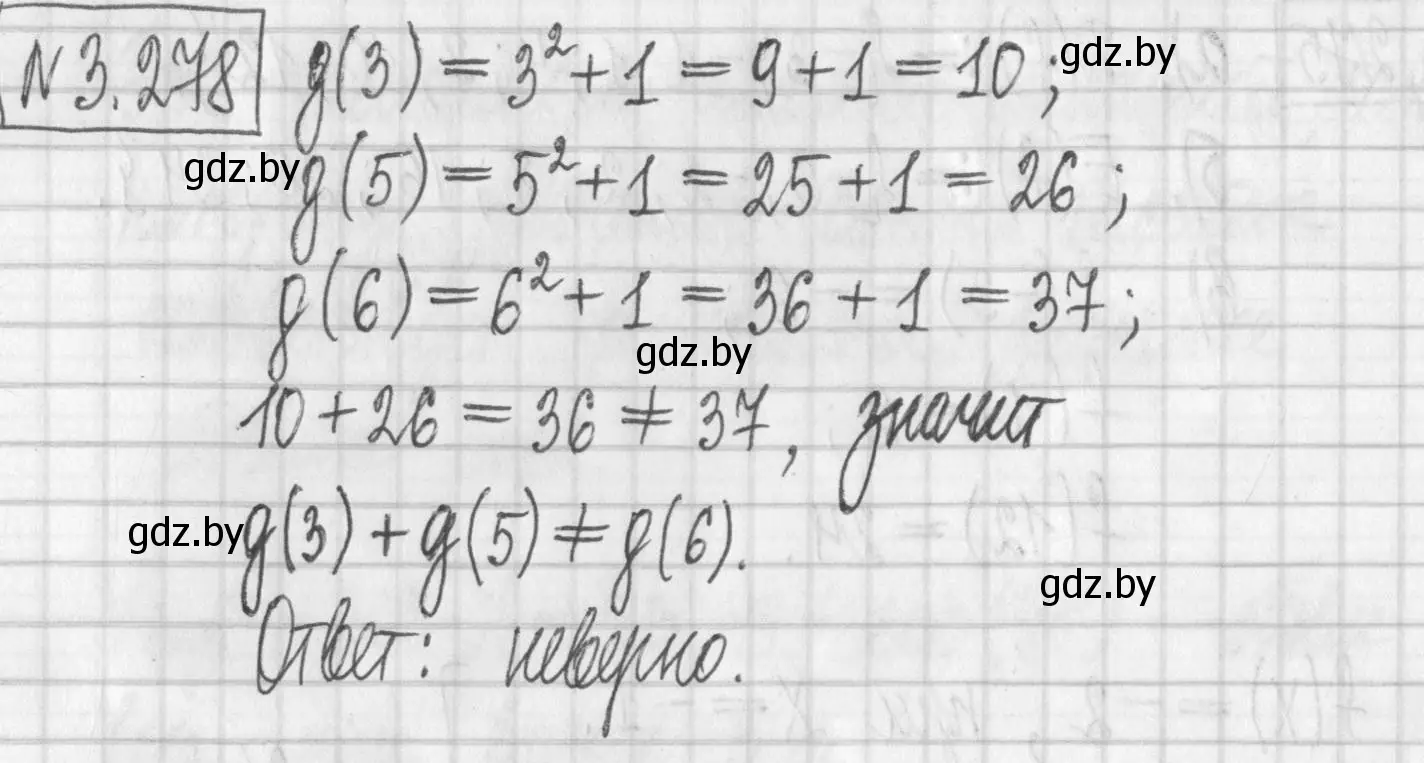 N 3.278 g(3) = 3² + 1 = 9 + 1 = 10 ; gdz.by
gdz.by g(5) = 5² + 1 = 25 + 1 = 26 ;
g(6) = 6² + 1 = 36 + 1 = 37 ;
gdz.by
10 + 26 = 36 ≠ 37, значит
gdz.by g(3) + g(5) ≠ g(6).
gdz.by
Ответ: неверно.